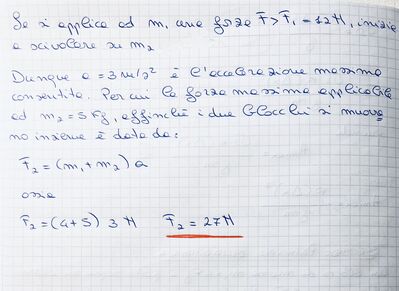 Se si applica ad m₁ una forza F > F₁ = 12 N, inizia
a scivolare su m₂
Dunque a = 3 m/s² è l'accelerazione massima
consentita. Per cui la forza massima applicabile
ad m₂ = 5 Kg, affinché i due blocchi si muova
no insieme è data da:
F₂ = (m₁ + m₂) a
ossia
F₂ = (4 + 5) 3 N F₂ = 27 N